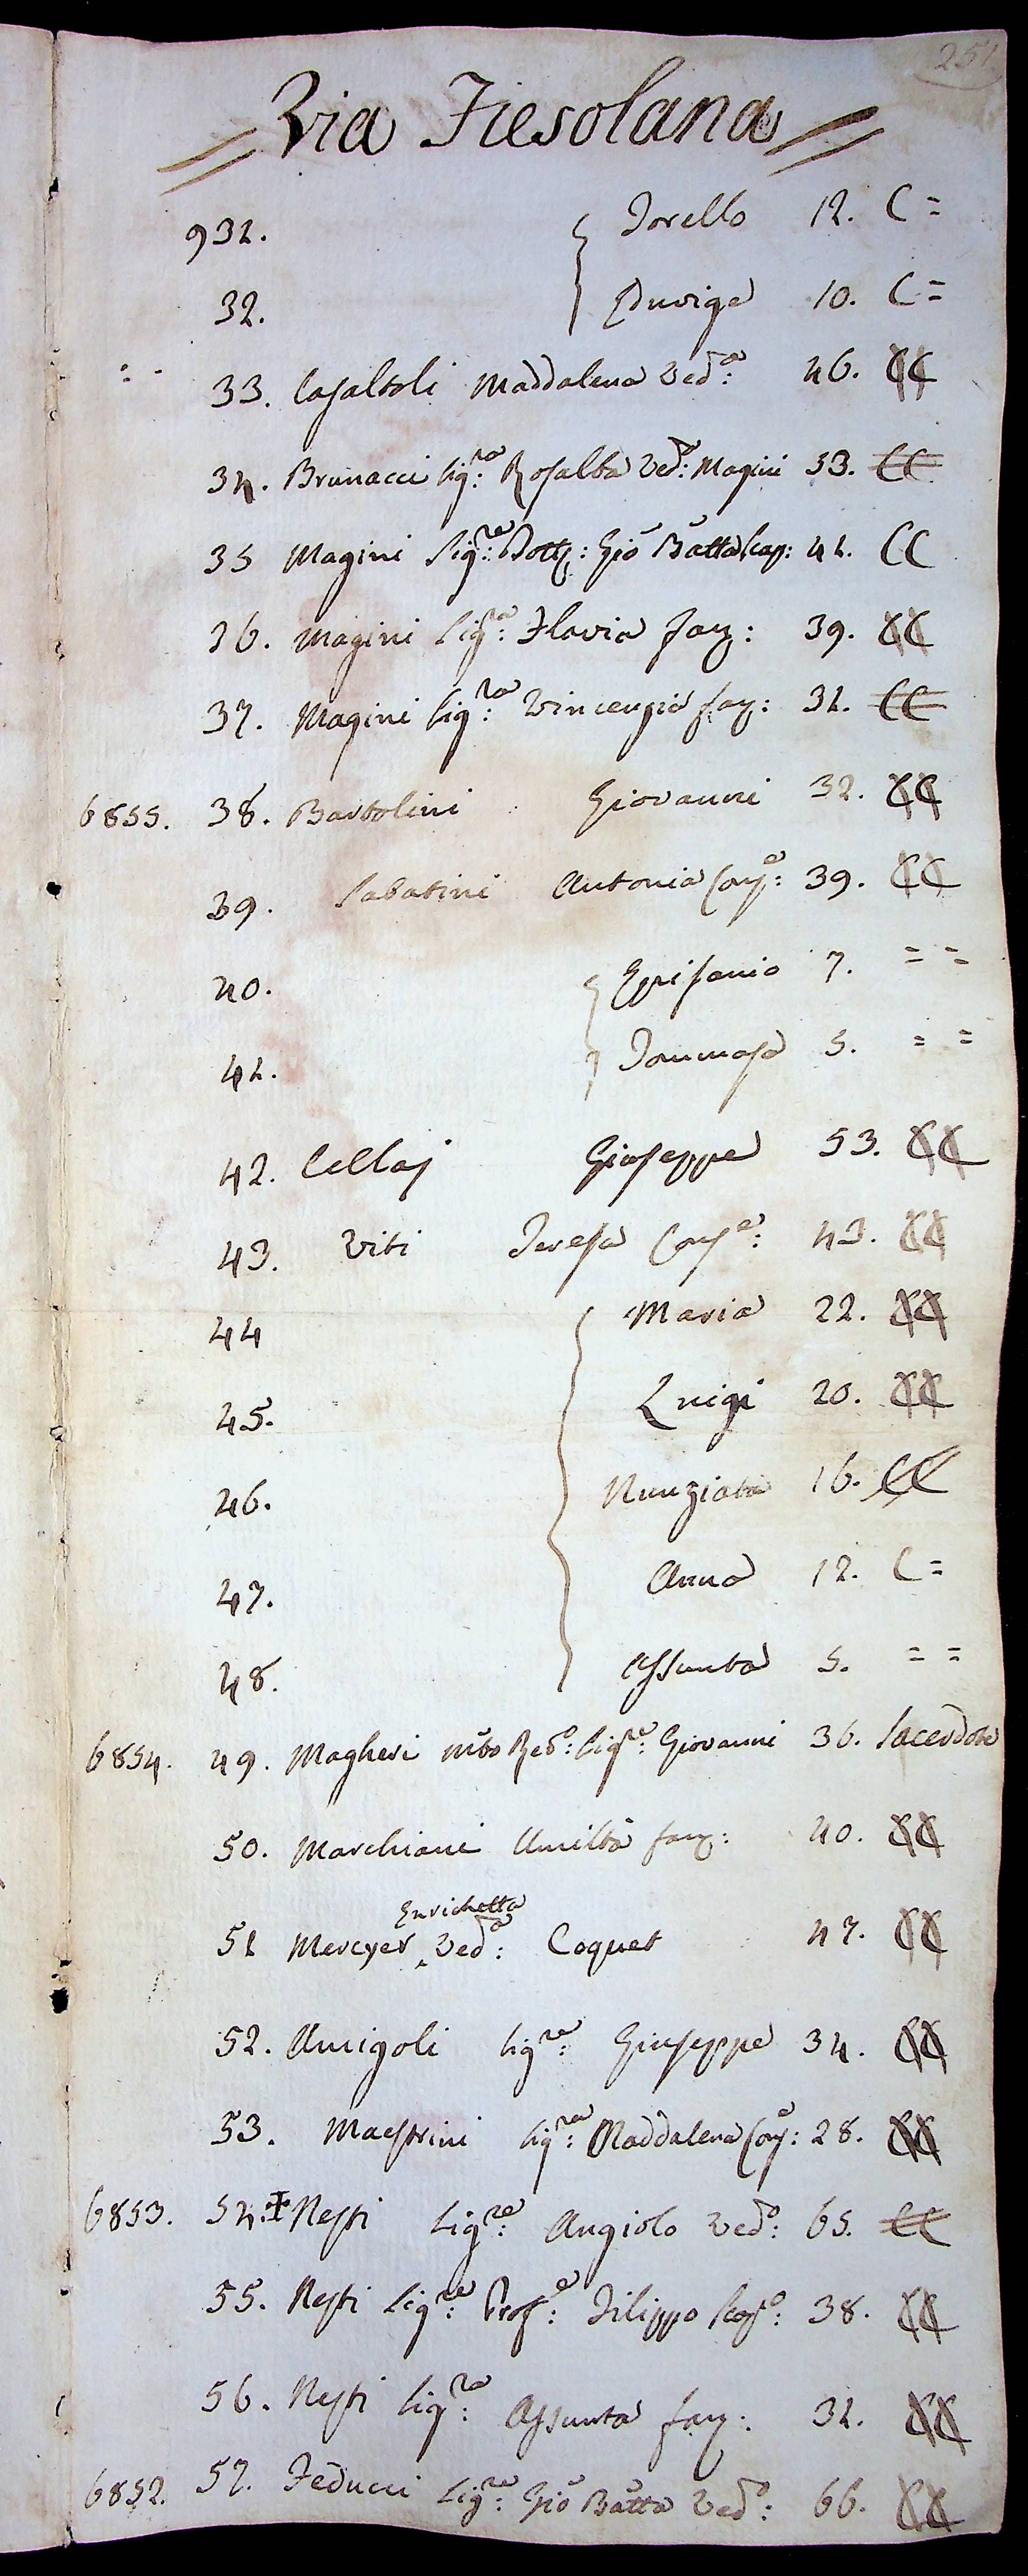 251
Via Fiesolana
932. Torello 12. C =
32. Eduvige 10. C =
33. Casaltoli Maddalena Ved.ª: 46. CC
34. Brunacci Sig.ra: Rosalba Ved.ª: Magini 53. CC
35 Magini Sig.re: Dott.: Gio Batta Scap: 41. CC
36. Magini Sig.ra: Flavia fan: 39. CC
37. Magini Sig.ra: Vincenzia fan: 31. CC
6855. 38. Bartolini Giovanni 32. CC
39. Sabatini Antonia Con.e: 39. CC
40. Epifanio 7. = =
41. Tommaso 5. = =
42. Cellaj Giuseppe 53. CC
43. Viti Teresa Con.e: 43. CC
44 Maria 22. CC
45. Luigi 20. CC
46. Nunziata 16. CC
47. Anna 12. C =
48. Assunta 5. = =
6854. 49. Magheri Mto Red.o: Sig.re: Giovanni 36. Sacerdote
50. Marchiani Umiltà fan: 40. CC
Enrichetta
51 Mercyer Ved.ª: Coquet 47. CC
52. Amigoli Sig.re: Giuseppe 34. CC
53. Maestrini Sig.ra: Maddalena Con.e: 28. CC
6853. 54. Nesti Sig.re: Angiolo Ved.o: 65. CC
55. Nesti Sig.re: Prof.e: Filippo Scap.o: 38. CC
56. Nesti Sig.ra: Assunta fan: 31. CC
6852. 57. Feducci Sig.re: Gio Batta Ved.o: 66. CC